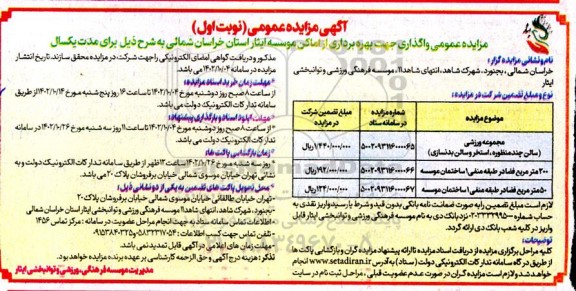 آگهی مزایده عمومی (نوبت اول)
مزایده عمومی واگذاری جهت بهره برداری از اماکن موسسه ایثار استان خراسان شمالی به شرح ذیل برای مدت یکسال
نام و نشانی مزایده گزار:
خراسان شمالی، بجنورد، شهرک شاهد، انتهای شاهد۱۱، موسسه فرهنگی ورزشی و توانبخشی ایثار
نوع و مبلغ تضمین شرکت در مزایده:
موضوع مزایده
شماره مزایده در سامانه ستاد
مبلغ تضمین شرکت در مزایده
مجموعه ورزشی (سالن چندمنظوره، استخر و سالن بدنسازی)
۵۰۰۲۰۹۳۱۱۶۰۰۰۰۶۵
۱/۴۴۰/۰۰۰/۰۰۰ ریال
۲۰۰ متر مربع فضا در طبقه منفی۱ ساختمان موسسه
۵۰۰۲۰۹۳۱۱۶۰۰۰۰۶۶
۱۹۲/۰۰۰/۰۰۰ ریال
۵۰ متر مربع فضا در طبقه منفی۱ ساختمان موسسه
۵۰۰۲۰۹۳۱۱۶۰۰۰۰۶۷
۱۳۴/۰۰۰/۰۰۰ ریال
لازم است مبلغ تضمین را به صورت ضمانت نامه بانکی بدون قید و شرط یا رسید واریز نقدی به
حساب شماره نزد بانک دی به نام موسسه فرهنگی ورزشی و توانبخشی ایثار قابل
واریز در کلیه شعب بانک دی ارائه گردد.
توضیحات:
کلیه مراحل برگزاری مزایده از دریافت اسناد مزایده تا ارائه پیشنهاد مزایده گران و بازگشایی پاکت ها
از طریق درگاه سامانه تدارکات الکترونیکی دولت (ستاد) به آدرس www.setadiran.ir انجام
خواهد شد و لازم است مزایده گران در صورت عدم عضویت قبلی، مراحل ثبت نام در سایت
مذکور و دریافت گواهی امضای الکترونیکی را جهت شرکت در مزایده محقق سازند. تاریخ انتشار
مزایده در سامانه ۱۴۰۲/۱۰/۰۴ می باشد.
*مهلت زمان خرید اسناد مزایده:
از ساعت ۸ صبح روز دوشنبه مورخ ۱۴۰۲/۱۰/۰۴ تا ساعت ۱۶ روز پنج شنبه مورخ ۱۴۰۲/۱۰/۱۴ از طریق
سامانه تدارکات الکترونیک دولت می باشد.
*مهلت آپلود اسناد و بارگذاری پیشنهاد:
*از ساعت ۸ صبح روز دوشنبه مورخ ۱۴۰۲/۱۰/۰۴ تا ساعت ۱۱ روز سه شنبه مورخ ۱۴۰۲/۱۰/۲۶ در سامانه
تدارکات الکترونیک دولت می باشد.
*زمان بازگشایی پاکت ها:
*روز سه شنبه مورخ ۱۴۰۲/۱۰/۲۶ ساعت ۱۲ ظهر از طریق سامانه تدارکات الکترونیک دولت و به
نشانی تهران خیابان موسوی شمالی خیابان برفروشان پلاک ۲۰ می باشد.
*محل تحویل پاکت های تضمین به یکی از دو نشانی ذیل:
*تهران خیابان طالقانی خیابان موسوی شمالی خیابان برفروشان پلاک ۲۰
بجنورد، شهرک شاهد، انتهای شاهد۱۱ موسسه فرهنگی ورزشی و توانبخشی ایثار استان خراسان شمالی
*اطلاعات تماس سامانه ستاد به جهت انجام مراحل عضویت در سامانه: مرکز تماس ۱۴۵۶
*تلفن تماس جهت کسب اطلاعات: ۰۵۸۳۲۳۱۷۰۵۴ و ۰۹۱۵۳۸۴۰۳۳۵
مهلت زمان های اعلامی در آگهی قابل تمدید نمی باشد.
تذکر: هزینه درج آگهی و حق الزحمه کارشناسی بر عهده برنده مزایده خواهد بود.
مدیریت موسسه فرهنگی، ورزشی و توانبخشی ایثار